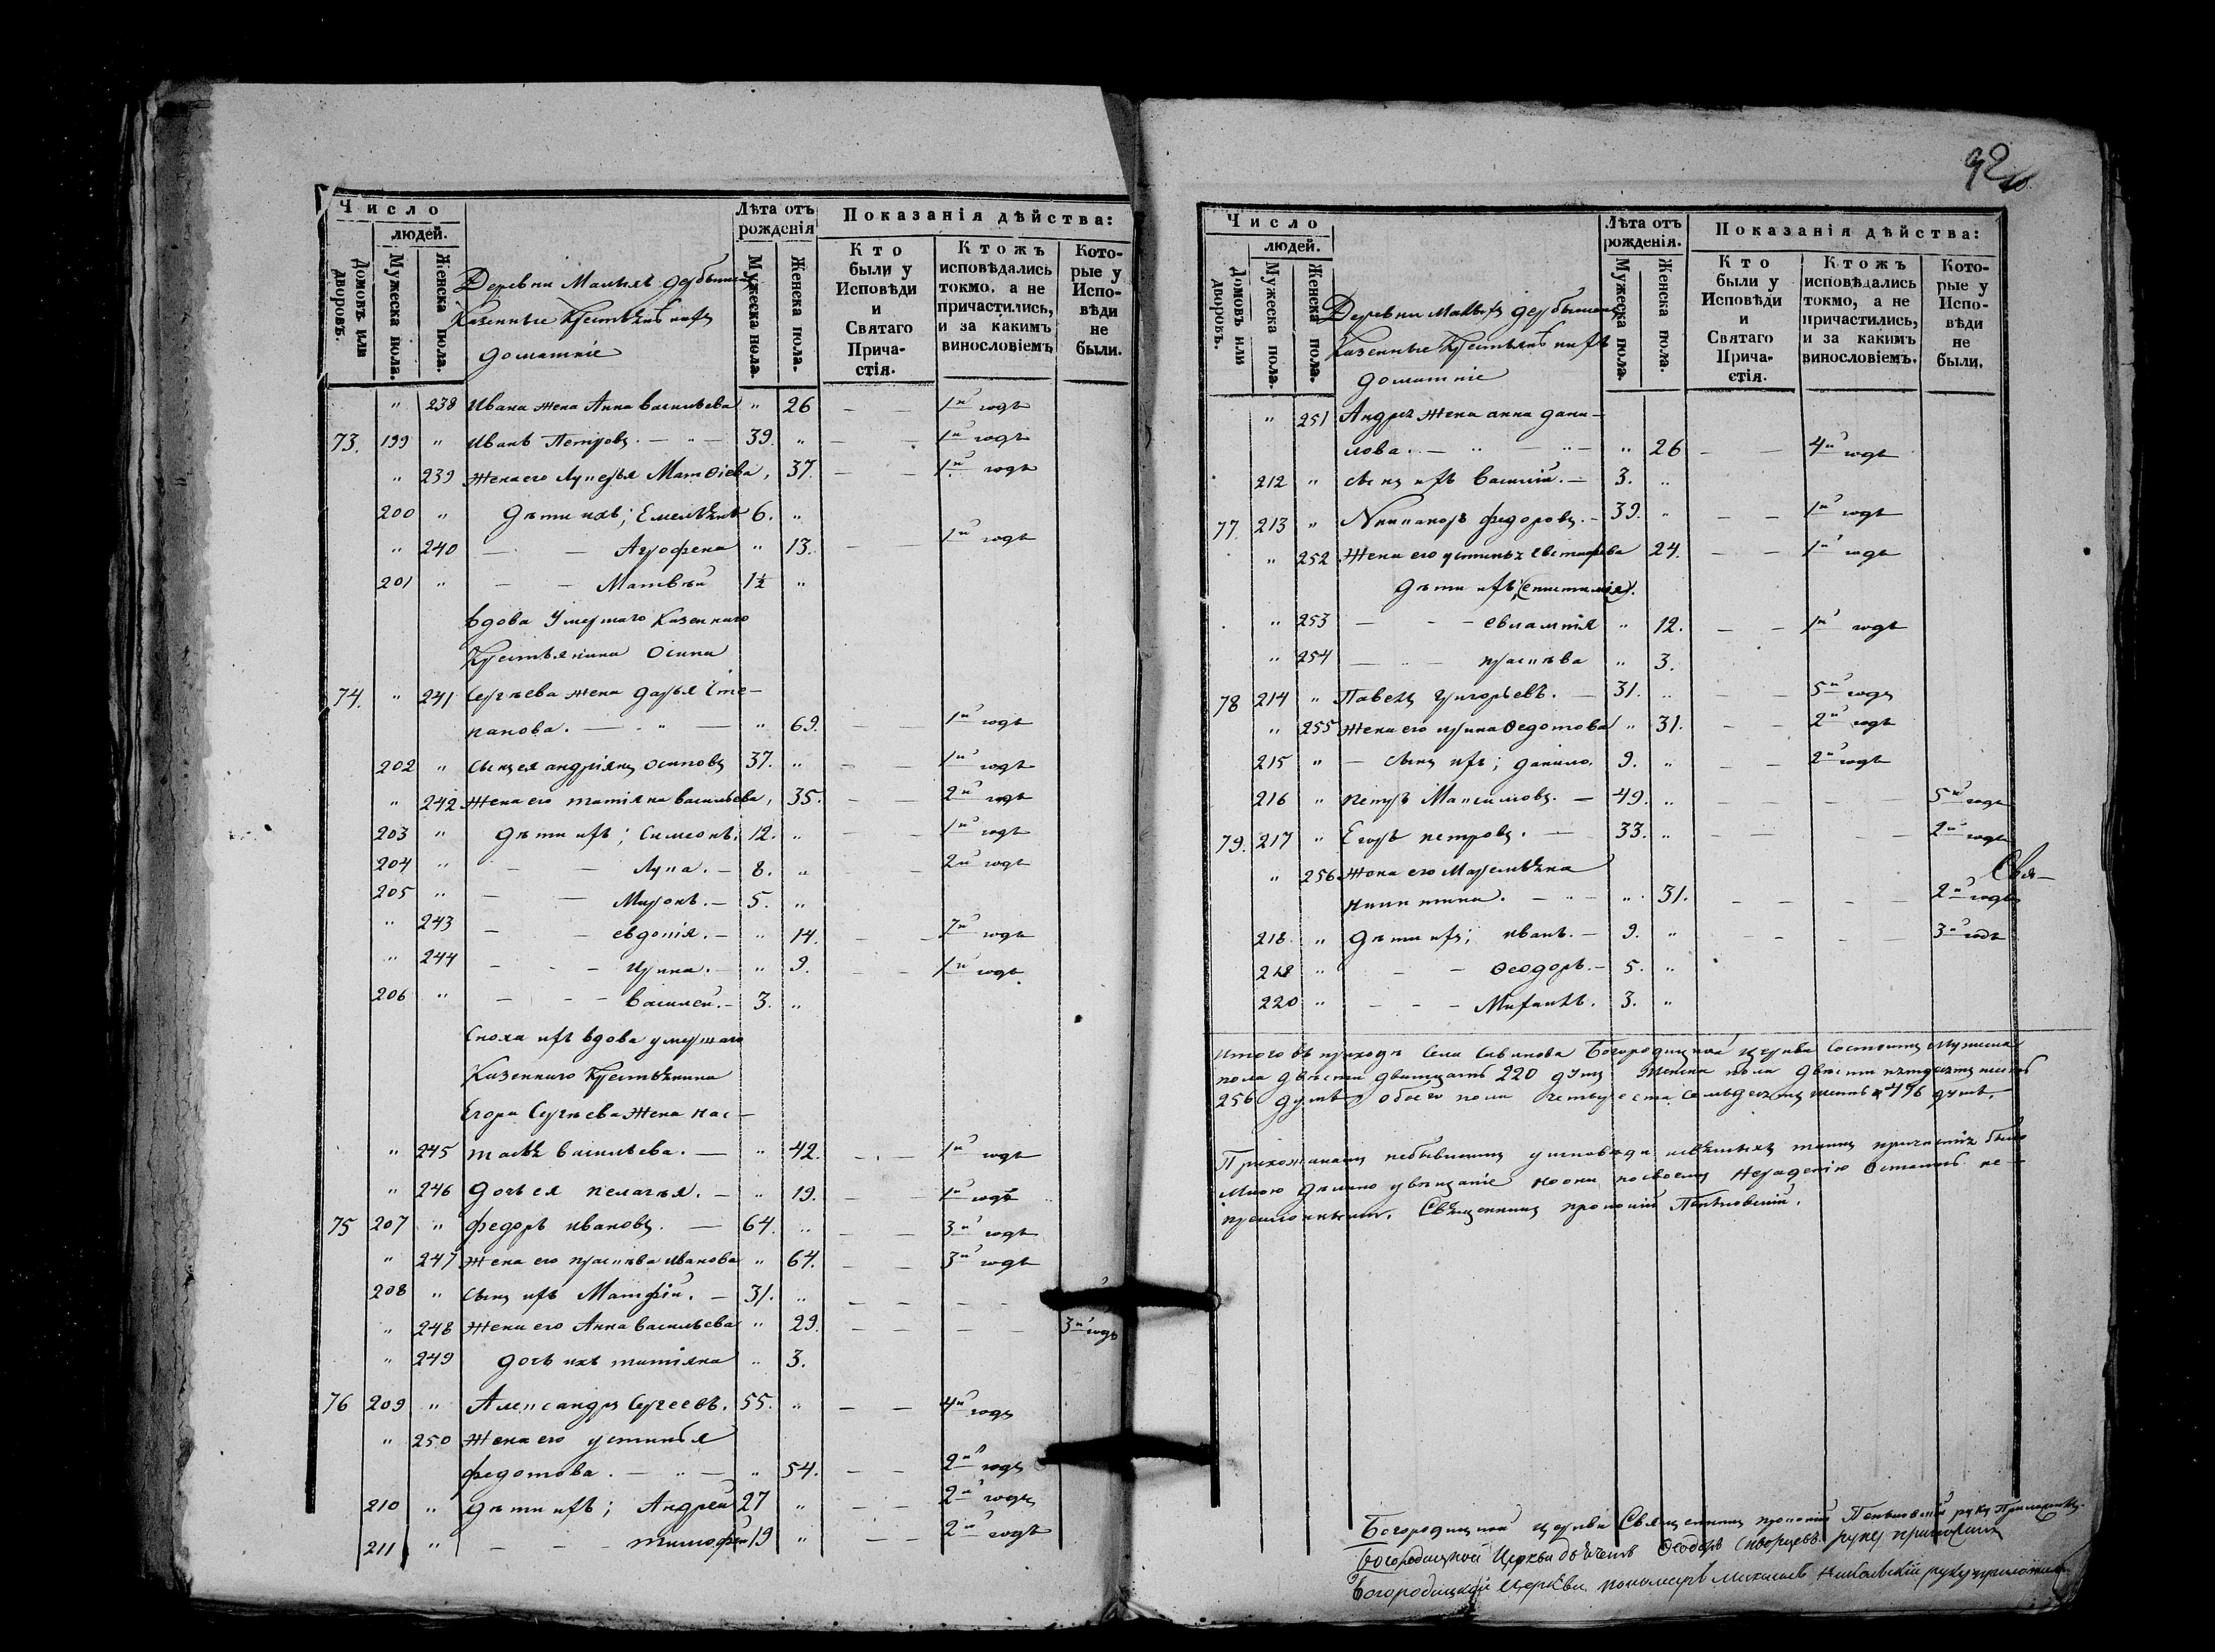 Число
людей.
Домовъ или дворовъ.
Мужеска пола.
Женска пола.
Деревни Малыхъ Дербышекъ
Казенные Крестьянѣ ихъ
домашніе
Лѣта отъ рожденія
Мужеска пола.
Женска пола.
Показанія дѣйства:
Кто были у Исповѣди и Святаго Причастія.
Ктожъ исповѣдались токмо, а не причастились, и за какимъ винословіемъ
Которые у Исповѣди не были.
" 238 Ивана жена Анна Васильева " 26 — — 1й годъ
73. 199 " Иванъ Петровъ. — " — 39. " — — 1й годъ
" 239 Жена его Лукерья Матѳіева, 37. — — 1й годъ
200 " Дѣти ихъ; Емельянъ 6. "
" 240 — — Агрофена " 13. — 1й годъ
201 " — — Матвѣй 1½ "
Вдова умершаго Казеннаго
Крестьянина Осипа
74. " 241 Сергѣева жена Дарья Сте-
панова. — " — " 69. — — 1й годъ
202 " Сынъ ея Андріянъ Осиповъ 37. " — — 1й годъ
" 242 Жена его Татіяна Васильева, 35. — — 2й годъ
203 " Дѣти ихъ; Симеонъ. 12. " — — 1й годъ
204 " — — Лука. — 8. " — — 2й годъ
205 " — — Миронъ. — 5. "
" 243 — — Евдокія. — " 14. — — 2й годъ
" 244 — — Ирина. — " 9. — — 1й годъ
206 " — — — Василей. — 3. "
Сноха ихъ вдова умершаго
Казеннаго Крестьянина
Егора Сергѣева жена Нас-
" 245 тасья Васильева. — " 42. — — 1й годъ
" 246 Дочь ея Пелагья. — " 19. — — 1й годъ
75 207 " Федоръ Ивановъ. — 64. " — — 3й годъ
" 247 Жена его Праскѣва Иванова " 64. — — 3й годъ
208 " Сынъ ихъ Матфій. — 31. " — — — —
" 248 Жена его Анна Васильева " 29. — — — — 3й годъ
" 249 Дочь ихъ Татіяна " 3.
76 209 " Александръ Сергеевъ. 55. " — — 4й годъ
" 250 Жена его Устинья
Федотова. — " — " 54. — — 2й годъ
210 " Дѣти ихъ; Андрей 27 " — — 2й годъ
211 " — — — Тимофей 19 " — — 2й годъ
92
Число
людей.
Домовъ или дворовъ.
Мужеска пола.
Женска пола.
Деревни Малыхъ Дербышекъ
Казенные Крестьянѣ ихъ
домашніе
Лѣта отъ рожденія.
Мужеска пола.
Женска пола.
Показанія дѣйства:
Кто были у Исповѣди и Святаго Причастія.
Ктожъ исповѣдались токмо, а не причастились, и за какимъ винословіемъ.
Которые у Исповѣди не были.
" 251 Андрея жена Анна Дани-
лова. — " — " — " 26 — — 4й годъ
212 " Сынъ ихъ Василій. — 3. "
77. 213 " Никаноръ Федоровъ. — 39. " — — 1й годъ
" 252 Жена его Устинья Евстафьева 24. — — 1й годъ
Дѣти ихъ,
" 253 — — — Евлампія " 12. — — 1й годъ
" 254 — " — Праскѣва " 3.
78 214 " Павелъ Григорьевъ. — 31. " — — 5й годъ
" 255 Жена его Ирина Ѳедотова " 31. — — 2й годъ
215 " — Сынъ ихъ; Данило. 9. " — — 2й годъ
216 " Петръ Максимовъ. — 49. " — — — — 5й годъ
79. 217 " Егоръ Петровъ. — 33. " — — — — 2й годъ
Свя-
" 256 Жена его Маремьяна
Никитина. — " — " 31. — — — — 2й годъ
218 " Дѣти ихъ; Иванъ. — 9. " — — — — 3й годъ
218 " — — Ѳеодоръ. — 5. "
220 " — — — Михаилъ. 3. "
Итого въ приходѣ Села Савинова Богородицкой Церкви состоитъ Мужеска
пола двѣсти двадцать 220 душъ Женска пола двѣсти пятдесятъ шесть
256 душъ обоего пола четыреста семьдесятъ шесть 476 душъ.
Прихожанамъ небывшимъ у исповѣди и святыхъ таинъ причастія было
Мною дѣлано увѣщаніе но они по своему нерадѣнію остались не-
преклонными. Священникъ Прокопій
Богородицкой Церкви Священникъ Прокопій руку приложилъ.
Богородицкой Церкви дьячекъ Ѳеодоръ Скворцевъ руку приложилъ
Богородицкой Церкви пономарь Михаилъ Никольскій руку приложилъ